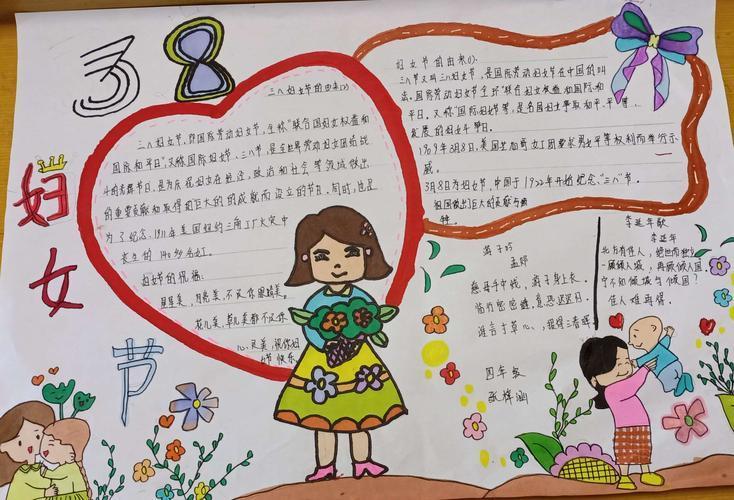 38
妇
女
节
三八妇女节的由来(2)
三八妇女节,即国际劳动妇女节,全称"联合国妇女权益和
国际和平日",又称国际妇女节、三八节,是全世界劳动妇女团结战
斗的光辉节日,是为庆祝妇女在经济、政治和社会等领域做出
的重要贡献和取得的巨大的成就而设立的节日。同时,也是
为了纪念,1911年美国纽约三角工厂火灾中
丧生的140多名女工。
妇女节的祝福:
星星美,月亮美,不及你眼睛美。
花儿美,草儿美都不及你
心灵美,祝你妇
女节快乐。
妇女节的由来(1).
三八节又叫三八妇女节,是国际劳动妇女节在中国的叫
法,国际劳动妇女节全称"联合妇女权益和国际和
平日,又称"国际妇女节等,是各国妇女争取和平、平等、
发展的妇女节日。
1909年3月8日,美国芝加哥女工因要求男女平等权利而举行示
威。
3月8日为妇女节,中国于1922年开始纪念"三八"节。
祖国做出巨大的贡献与
游子吟
孟郊
慈母手中线,游子身上衣。
临行密密缝,意恐迟迟归。
谁言寸草心,报得三春晖。
四年级
李延年歌
李延年
北方有佳人,绝世而独立。
一顾倾人城,再顾倾人国。
宁不知倾城与倾国?
佳人难再得。